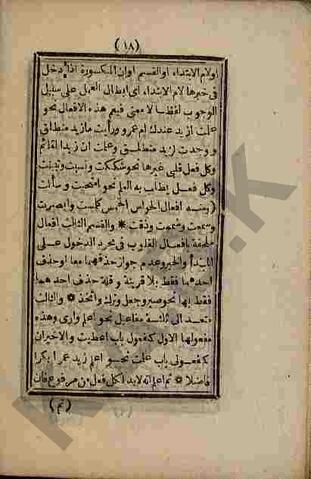 (١٨)
اولام الابتداء او القسم اوان المكسورة اذا دخل
فى خبرها لام الابتداء اى ابطال العمل على سبيل
الوجوب لفظا لا معنى فيعم هذه الافعال نحو
علمت ازيد عندك ام عمرو ورأيت ما زيد منطلق
ووجدت زيد منطلق وعلمت ان زيدا لقائم
وكل فعل قلبى غيرها نحو شككت ونسيت وتبينت
وكل فعل يطلب به العلم نحو امتحنت وسألت
ومنه افعال الحواس الخمس كلمست وابصرت
وسمعت وشممت وذقت * والقسم الثالث افعال
ملحقة بافعال القلوب فى مجرد الدخول على
المبتدأ والخبر وعدم جواز حذفهما معا او حذف
احدهما فقط بلا قرينة وقلة حذف احدهما
فقط بها نحو صير وجعل وترك واتخذ * والثالث
متعد الى ثلثة مفاعيل نحو اعلم وارى وهذه
مفعولها الاول كمفعول باب اعطيت والاخيران
كمفعولى باب علمت نحو اعلم زيد عمرا بكرا
فاضلا * ثم اعلم انه لابد لكل فعل من مرفوع فان
(تم)
K